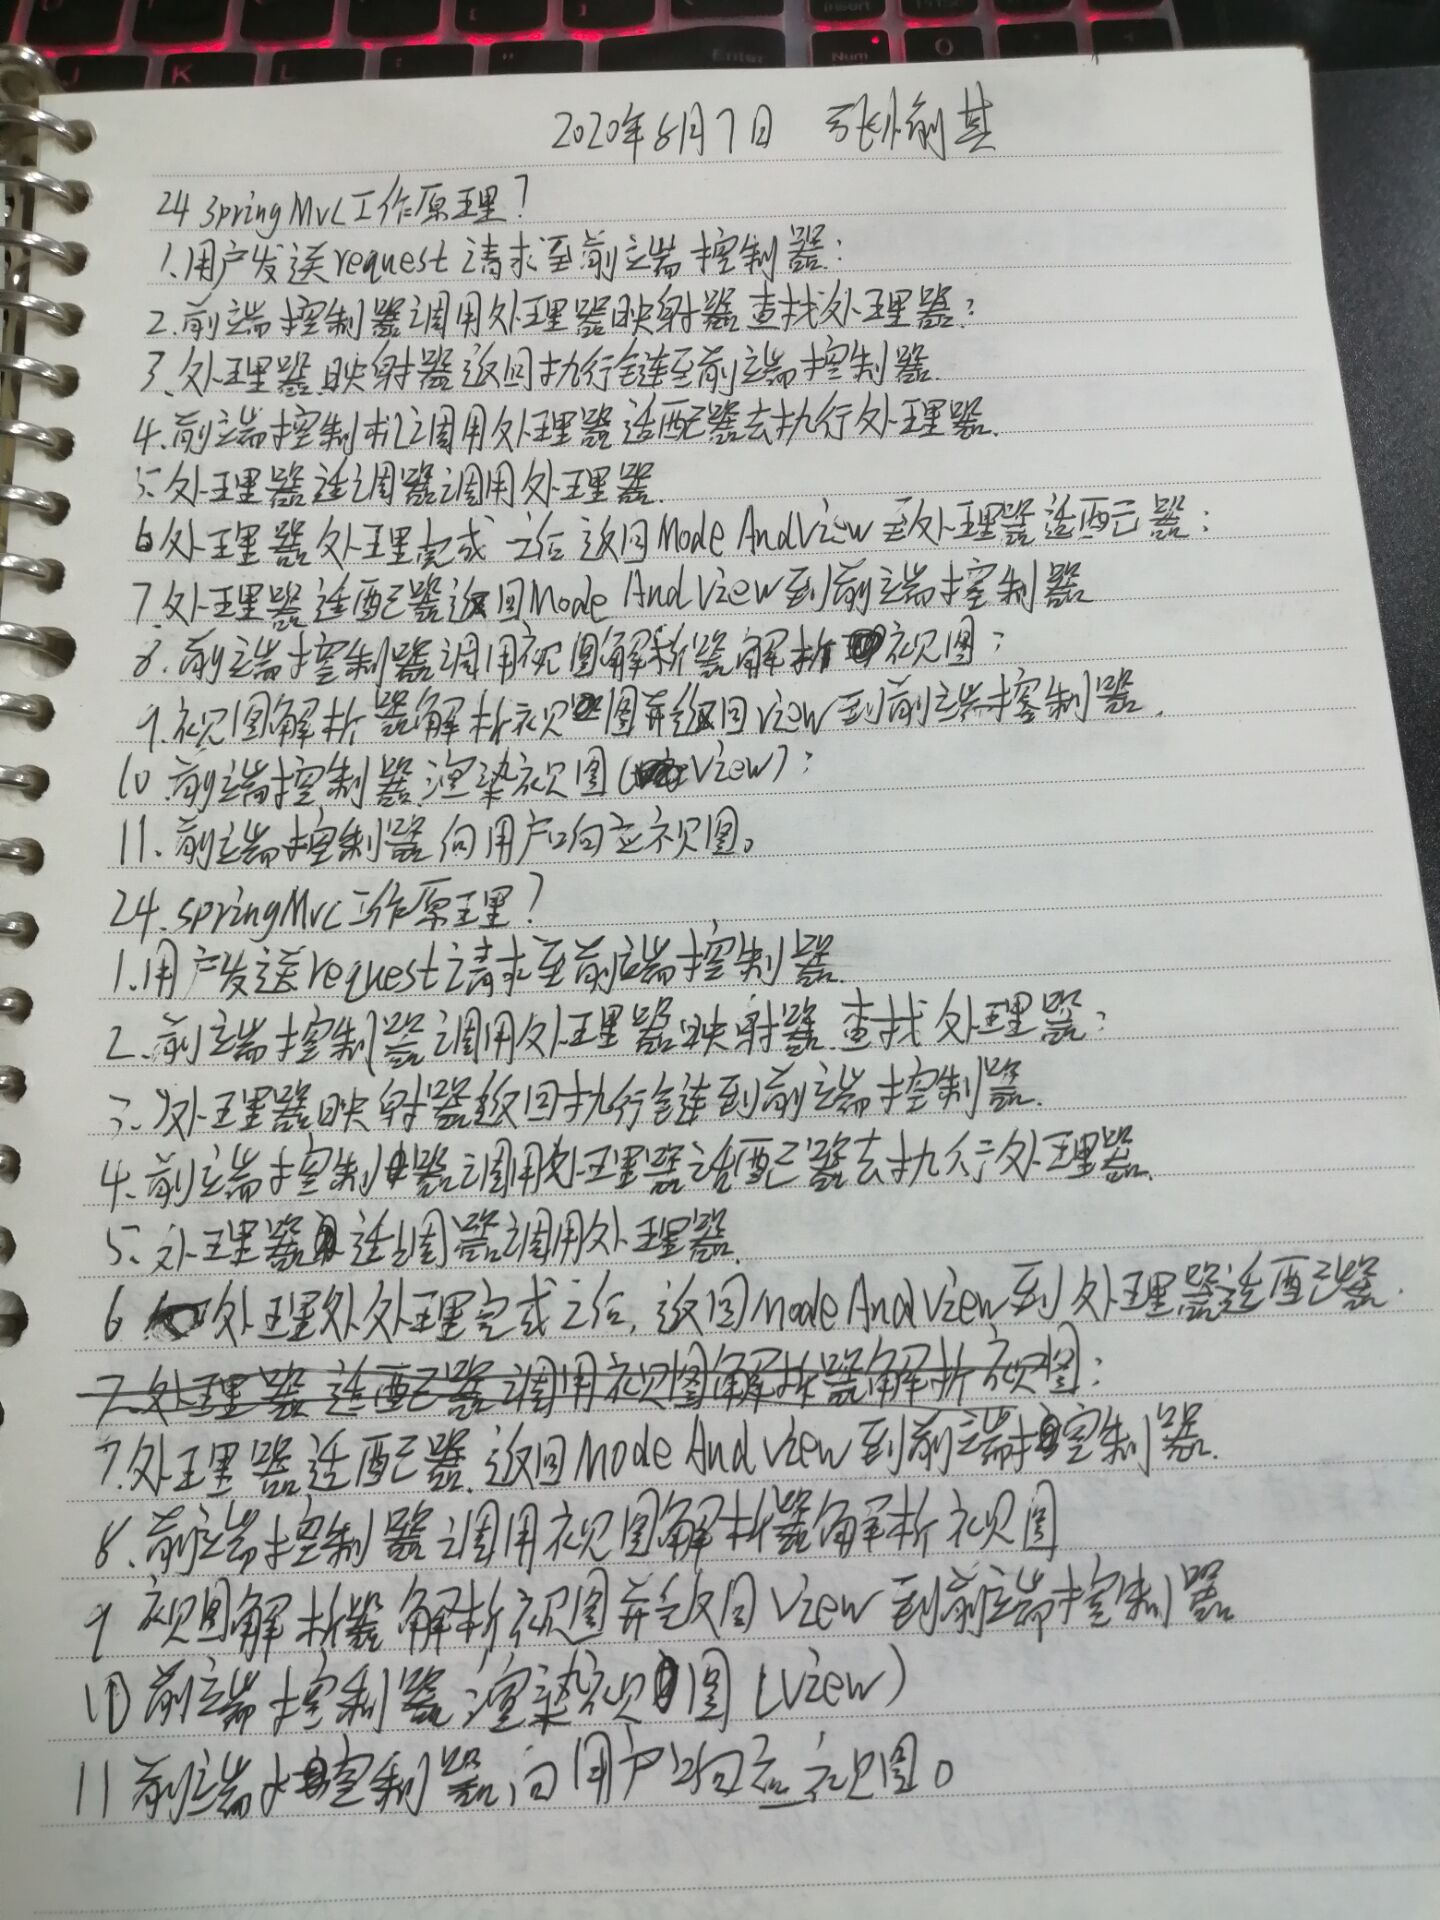 2020年6月7日 张愉其
24 springMvc工作原理?
1.用户发送request请求至前端控制器:
2.前端控制器调用处理器映射器查找处理器:
3.处理器映射器返回执行链至前端控制器.
4.前端控制机调用处理器适配器去执行处理器.
5.处理器适调器调用处理器.
6处理器处理完成之后返回Mode AndView至处理器适配器:
7.处理器适配器返回Mode AndView到前端控制器
8.前端控制器调用视图解析器解析视图:
9.视图解析器解析视图并返回view到前端控制器.
10.前端控制器渲染视图(view):
11.前端控制器向用户响应视图。
24.springMvc工作原理?
1.用户发送request请求至前端控制器.
2.前端控制器调用处理器映射器查找处理器:
3.处理器映射器返回执行链到前端控制器.
4.前端控制器调用处理器适配器去执行处理器.
5.处理器适调器调用处理器.
6 处理处处理完成之后,返回mode AndView到处理器适配器.
7.处理器适配器调用视图解析器解析视图:
7.处理器适配器返回Mode AndView到前端控制器.
8.前端控制器调用视图解析器解析视图
9 视图解析器解析视图并返回View到前端控制器
10前端控制器渲染视图(view)
11前端控制器向用户响应视图。